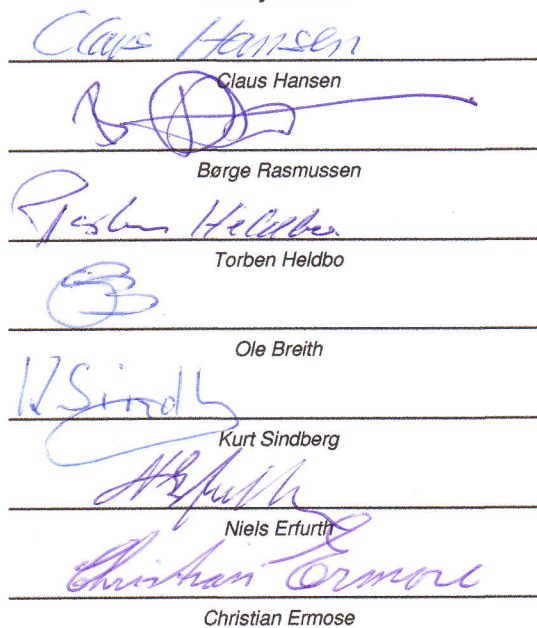 Claus Hansen
Claus Hansen
Børge Rasmussen
Torben Heldbo
Torben Heldbo
Ole Breith
K Sindb
Kurt Sindberg
N Erfurth
Niels Erfurth
Christian Ermose
Christian Ermose